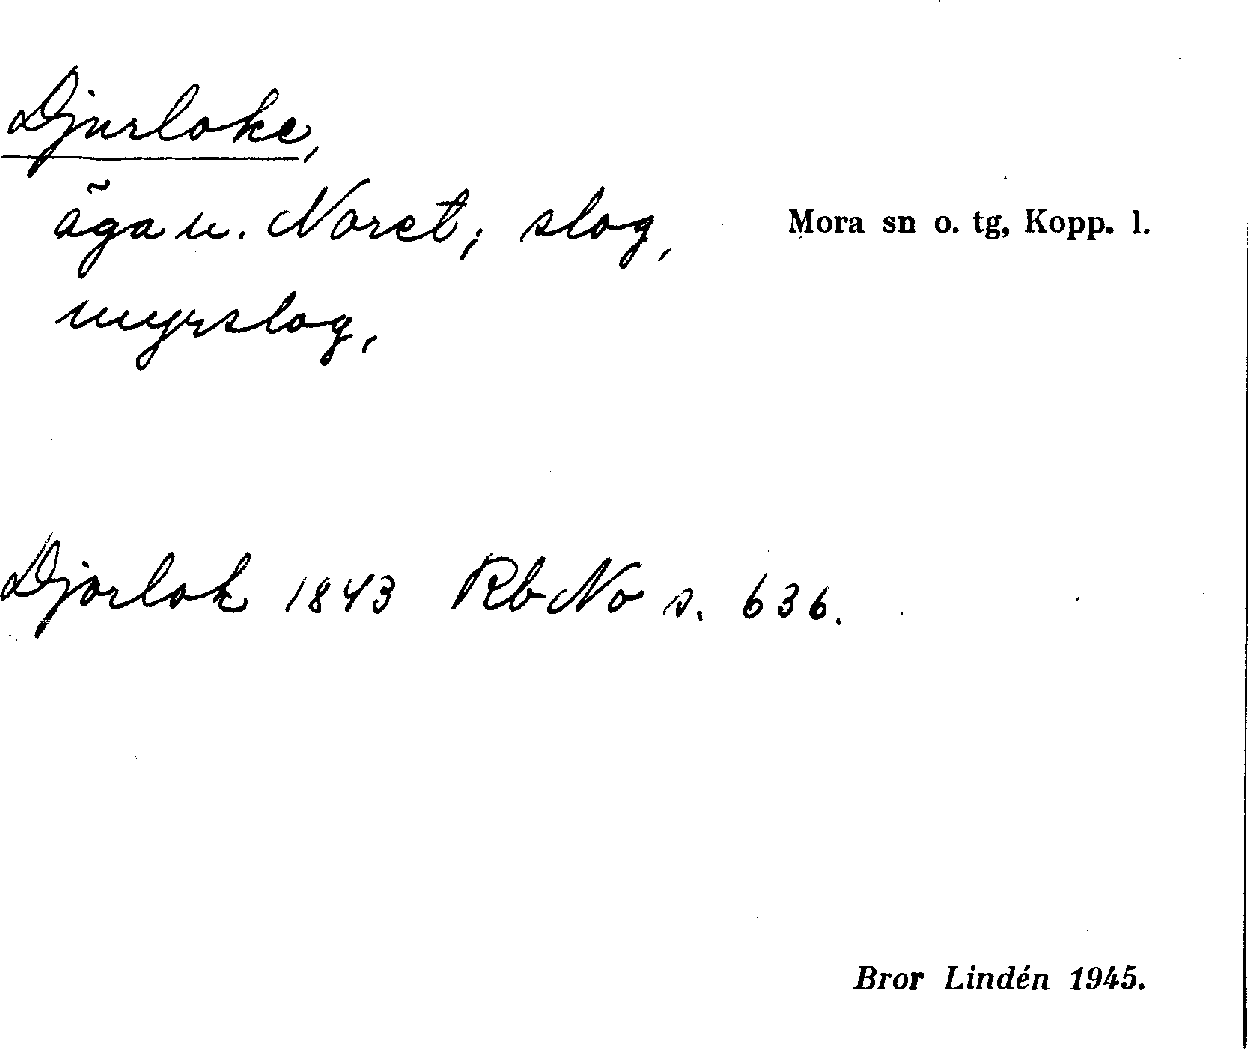 Djurloke,
äga u. Noret; slog, Mora sn o. tg, Kopp. l.
myrslog,
Djorlok 1843 Rb No s. 636.
Bror Lindén 1945.